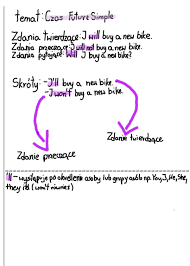 temat: Czas Future Simple
Zdania twierdzące: I will buy a new bike.
Zdania przeczące: I will not buy a new bike.
Zdania pytające: Will I buy a new bike?
Skróty: - I'll buy a new bike.
- I won't buy a new bike.
Zdanie twierdzące
Zdanie przeczące
'll - występuje po określeniu osoby lub grupy osób np. You, I, He, She,
they itd (won't również)